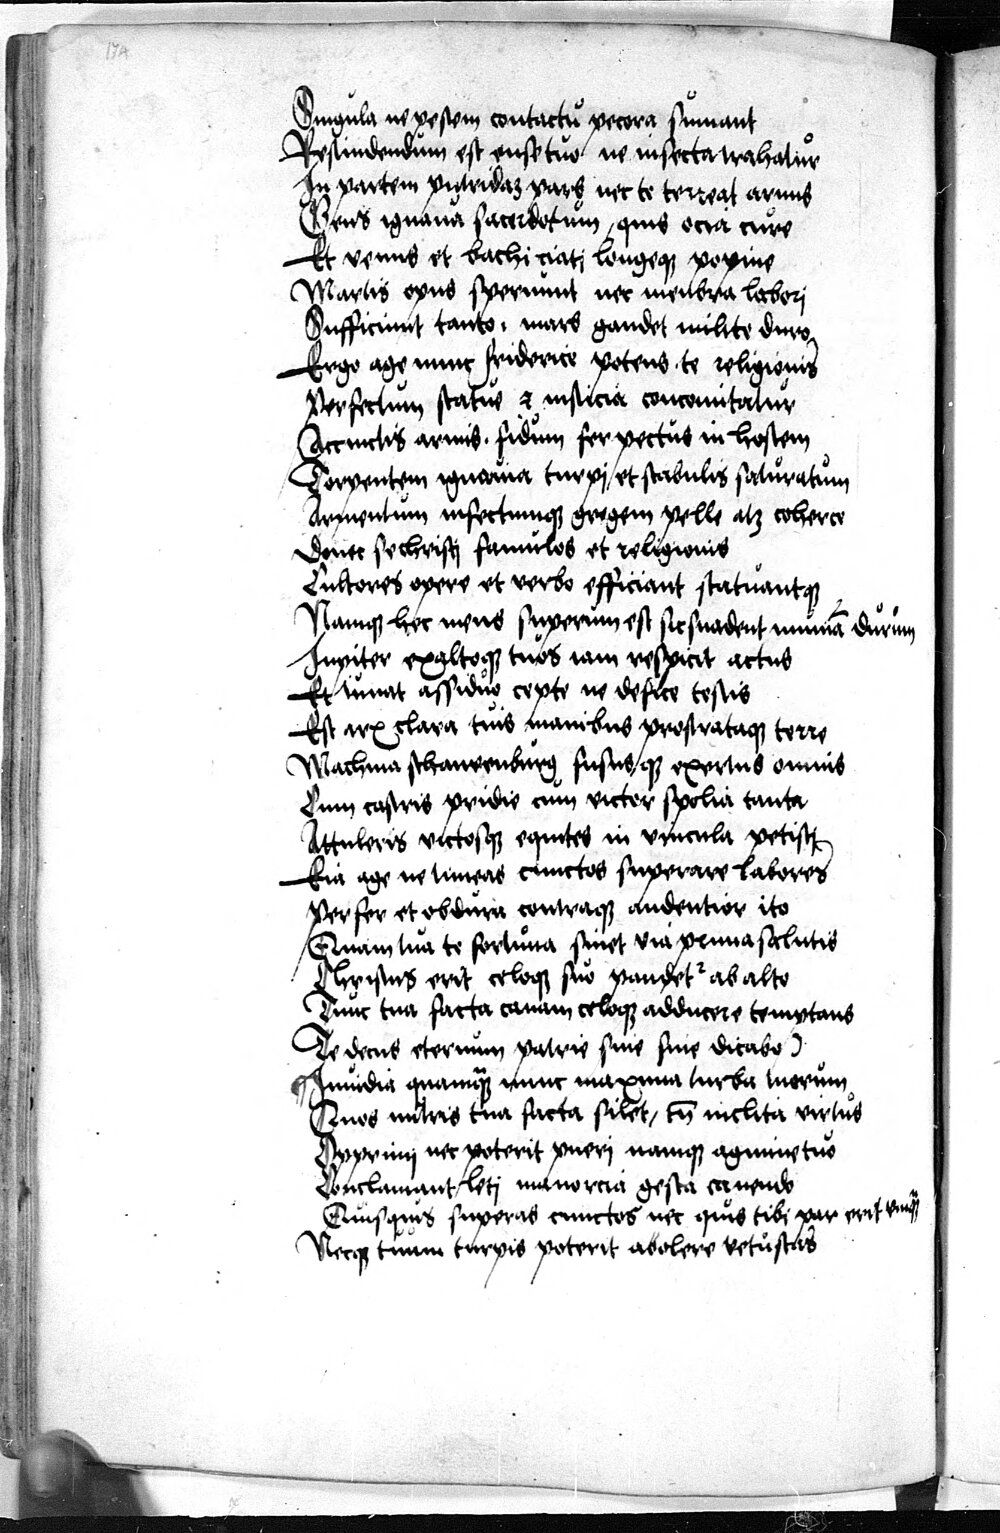 17A
Singula ne pestem contactu pecora sumant
Rescindendum est ense tuo ne infecta trahatur
In partem putridaz pars nec te terreat armis
Gens ignaua sacerdotum, quis ocia cure
Et venus et bachi ciatj longeqꝫ popine
Martis opus spernunt nec menbra laborj
Sufficiunt tanto, mars gaudet milite duro
Ergo age nunc friderice potens te religionis
Perfectum statue & iusticia concomitatur
Accinctis armis. fidum fer pectus in hostem
Torpentem ignauia turpj et stabulis saturatum
Armentum infectumqꝫ gregem pelle atqꝫ coherce
Donec se christj famulos et religionis
Cultores opere et verbo efficiant statuantqꝫ
Namqꝫ hec mens superum est sic suadent durum
Iupiter exaltoqꝫ tuos iam respicit actus
Et iuuat assiduo cepte ne defice testis
Est arx clara tuis manibus prostrataqꝫ terre
Machina schauuenburg fususqꝫ exertus omnis
Cum castris pridie cum victor spolia tanta
Attuleris victosqꝫ equites in vincula petistj
Eia age ne timeas cunctos superare labores
Perfer et obdura contraqꝫ audentior ito
Quam tua te fortuna sinet via prima salutis
Christus erit celoqꝫ suo pandetʳ ab alto
Tunc tua facta canam celoqꝫ adducere temptans
Te decus eternum patrie sine fine dicabo
Inuidia quamqꝫ nunc maxima turba tuorum
Quos nutris tua facta silet, tn̄ inclita virtus
Opprimj nec poterit puerj namqꝫ agmine tuo
Conclamant letj gesta canendo
Quisquis superas cunctos nec quis tibj par erit vnqꝫ
Necqꝫ tuum turpis poterit abolere vetustas